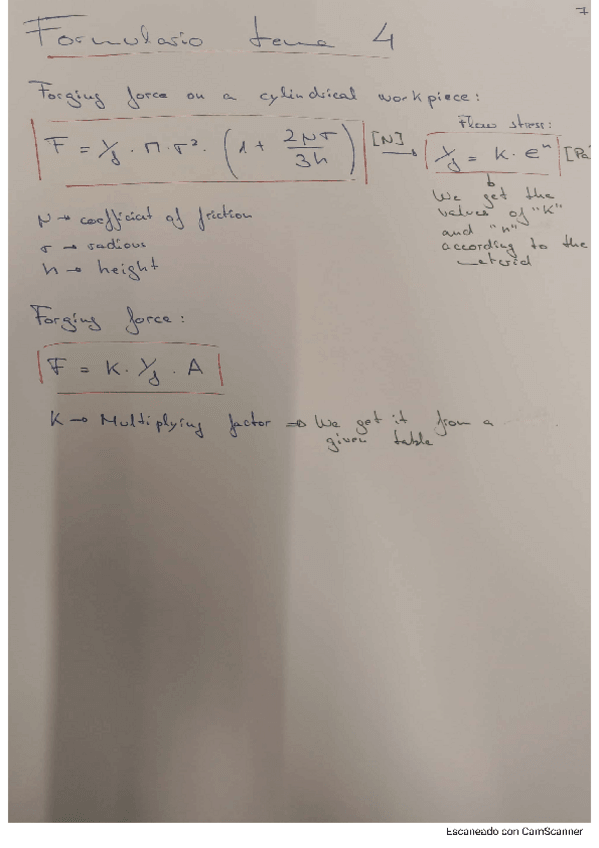 7
Formulario tema 4
Forging force on a cylindrical workpiece:
F = Yf · π · r² · (1 + 2μr / 3h) [N] →
Flow stress:
Yf = K · ϵⁿ [Pa]
We get the
values of "K"
and "n"
according to the
material
μ → coefficiat of friction
r → radious
h → height
Forging force:
F = K · Yf · A
K → Multiplying factor ⇒ We get it from a
given table
Escaneado con CamScanner